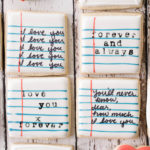 I love you
I love you
I love you
I love you
I love you
forever
and
always
love
you
x
forever
you'll never
know,
dear,
how much
I love you